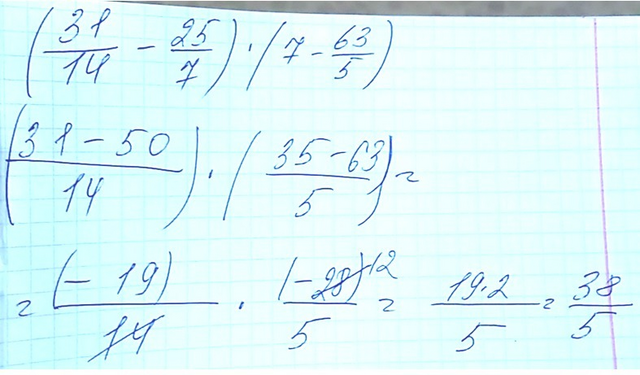 (31/14 - 25/7) · (7 - 63/5)
(31-50/14) · (35-63/5) =
= (-19)/14 · (-28)-12/5 = 19·2/5 = 38/5